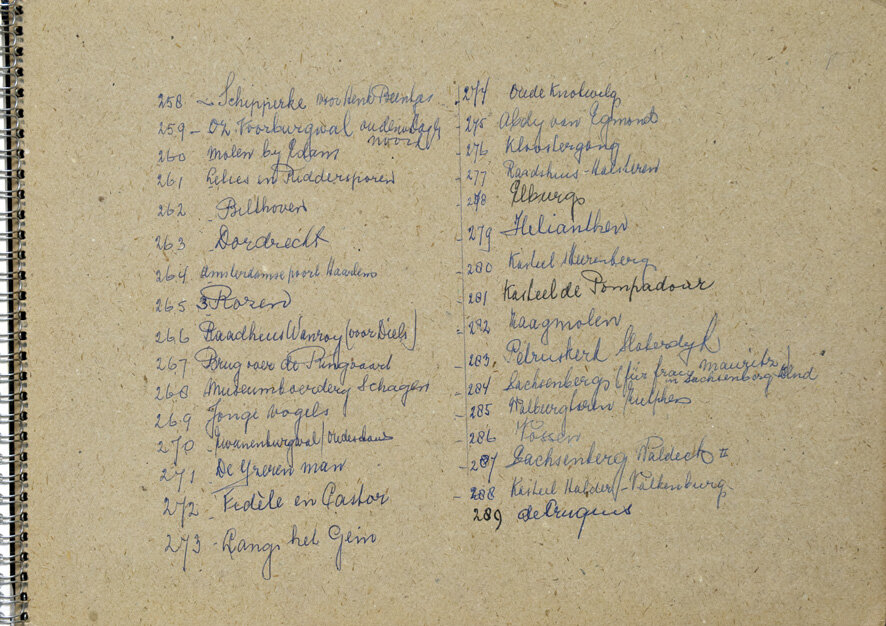 258 - Schipperke voor Henk Beintjes
259 - OZ Voorburgwal
noord
260 molen by Edam
261 Lelies en Riddersporen
262 - Bilthoven
263 Dordrecht
264 Amsterdamse poort Haarlem
265 3 Rozen
266 Raadhuis Wanroy (voor Diels)
267 Brug over de Ringvaart
268 Museumboerdery Schagen
269 Jonge vogels
270 Zwanenburgwal/Oudeschans
271 De Groenen man
272 - Fidèle en Castor
273 - Langs het Gein
274 Oude Knotwilg
- 275 Abdy van Egmond
- 276 Kloostergang
- 277 Raadhuis - Halsteren
- 278 Elburg
- 279 Helianthen
- 280 Kasteel
- 281 Kasteel de Pompadour
- 282 Zaagmolen
- 283 Petruskerk Sloterdyk
- 284 Sachsenberg (für frau Mauritz)
in Sachsenberg
- 285 Walburgtoren Zutphen
- 286 Vossen
- 287 Sachsenberg Waldeck II
- 288 Kasteel - Valkenburg
289 de Cruquius